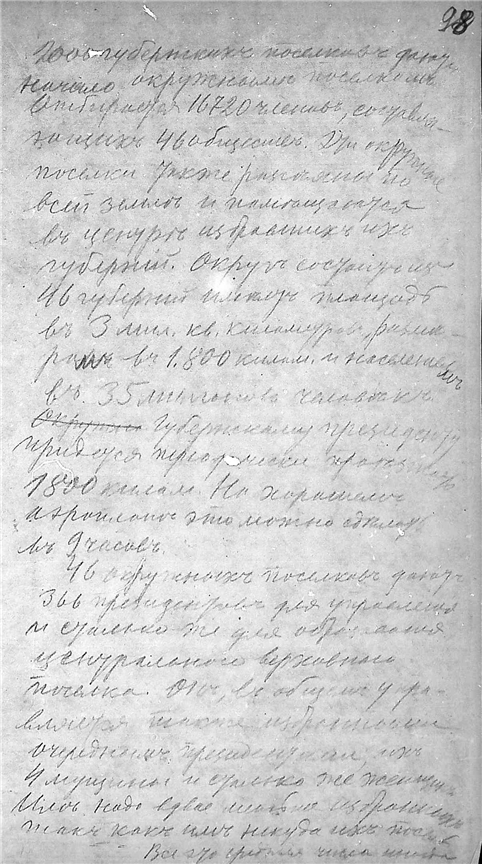 98
губернскихъ поселковъ даютъ
начало окружнымъ поселкамъ
Отбирается 16720 членовъ, составля-
ющихъ 46 обществъ. Эти окружные
поселки также раскиданы по
всей землѣ и помѣщаются
въ центрѣ избравшихъ ихъ
губерний. Округъ состоитъ изъ
46 губерний имѣетъ площадь
въ 3 мил. кв. километровъ, разма-
въ 1.800 килом. и населеніемъ
въ 35 милліоновъ человѣкъ.
Губернскому президенту
придется періодически проезжать
1800 килом. На хорошемъ
аэропланѣ это можно сдѣлать
въ 9 часовъ.
46 окружныхъ поселковъ даютъ
366 президентовъ для управленія
и столько же для образованія
центральнаго верховнаго
поселка. Онъ, въ общемъ управ-
вляется также избраннымъ
очереднымъ президентомъ ихъ
4 мущины и столько же женщинъ
Имъ надо вдвое меньше избранныхъ
такъ какъ имъ некуда ихъ
Всего